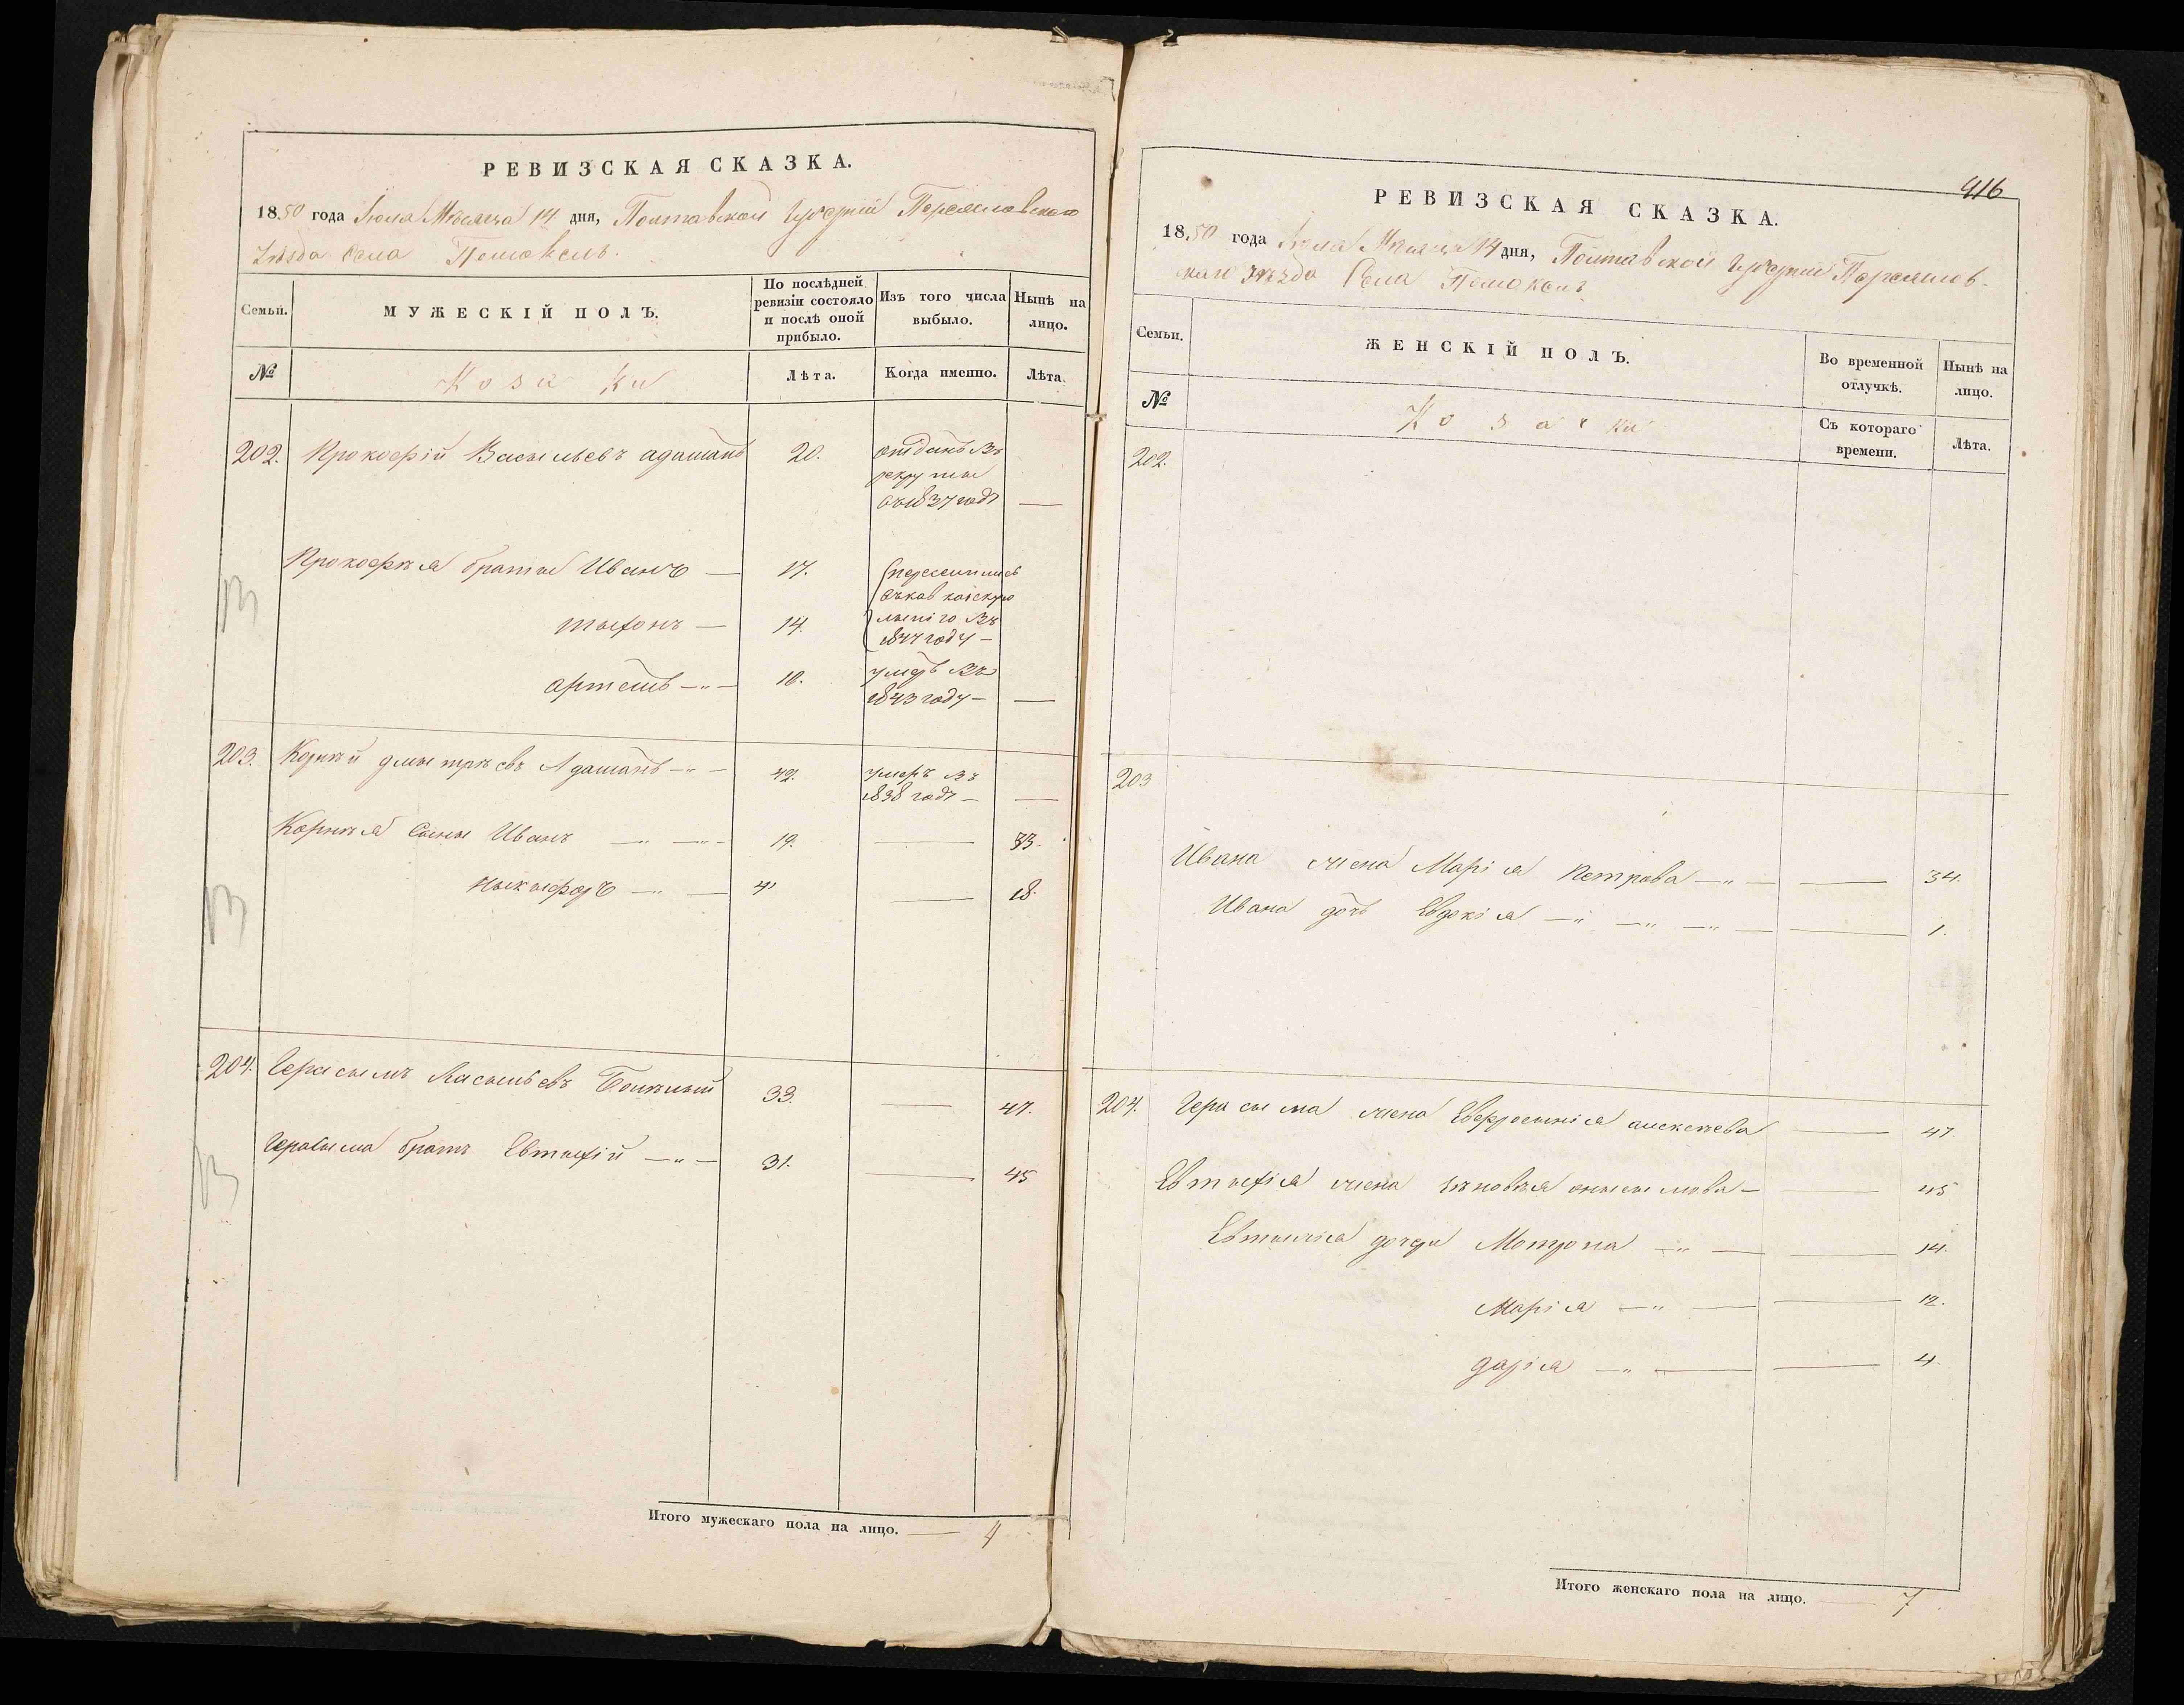 РЕВИЗСКАЯ СКАЗКА.
1850 года Іюля Мѣсяца 14 дня, Полтавской Губерніи Переяславскаго
Уѣзда Села Помоклъ.
Семьи.
МУЖЕСКІЙ ПОЛЪ.
По послѣдней ревизіи состояло и послѣ оной прибыло.
Изъ того числа выбыло.
Нынѣ на лицо.
№
Козаки
Лѣта.
Когда именно.
Лѣта.
202. Прокофій Васильевъ адаманъ 20. отданъ Въ
рекруты
въ 1837 годѣ —
Прокофія братья Иванъ — 17.
тыхонъ — 14. Въ
1844 году —
артемъ —„— 10. умеръ Въ
1843 году — —
203. Корнѣй дмытрѣевъ Адаманъ —„— 42. умеръ Въ
1838 годѣ — —
Корнѣя Сыны Иванъ —„— —„— 19. — 33.
ныкыфоръ —„— — 4 — 18.
204. Герасымъ Васыльевъ 33. — 47.
Герасыма братъ Евтыхій —„— 31. — 45
Итого мужескаго пола на лицо. — 4
416
РЕВИЗСКАЯ СКАЗКА.
1850 года Іюля Мѣсяца 14 дня, Полтавской Губерніи Переяслов-
скаго уѣзда Села Помоклъ
Семьи.
ЖЕНСКІЙ ПОЛЪ.
Во временной отлучкѣ.
Нынѣ на лицо.
№
Козачки
Съ котораго времени.
Лѣта.
202.
203
Ивана жена Марія Петрова —„— — 34.
Ивана дочь Евдокія —„— —„— —„— — 1.
204. Герасыма жена Евфросынія алексѣева — 47
Евтыхія жена зѣновѣя онысымова — — 45
Евтыхія дочери Мотрона —„— — 14.
Марія —„— — — 12.
дарія —„— — — 4.
Итого женскаго пола на лицо. — 7